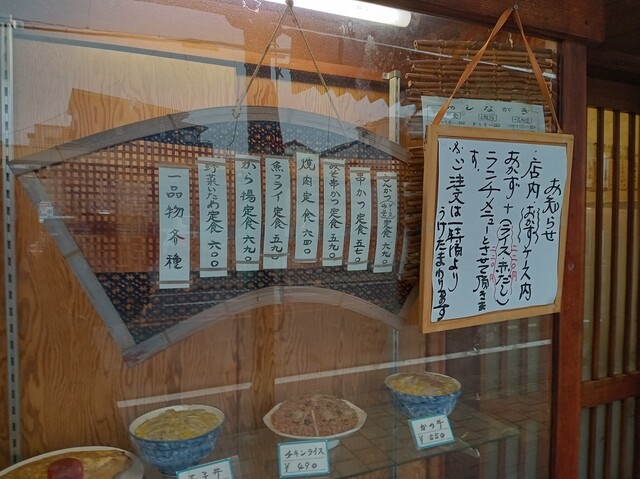 おしながき
お知らせ
・店内おかずケース内
おかず+ライス赤だし
ランチメニューとさせて頂きま
す。
※ご注文は一時頃より
うけたまわります
とんかつ定食 六九〇
串かつ定食 五七〇
みそ串かつ定食 五九〇
焼肉定食 六四〇
魚フライ定食 五九〇
から揚定食 六九〇
野菜いため定食 六〇〇
一品物各種
かつ丼
¥550
チキンライス
¥490
玉子丼